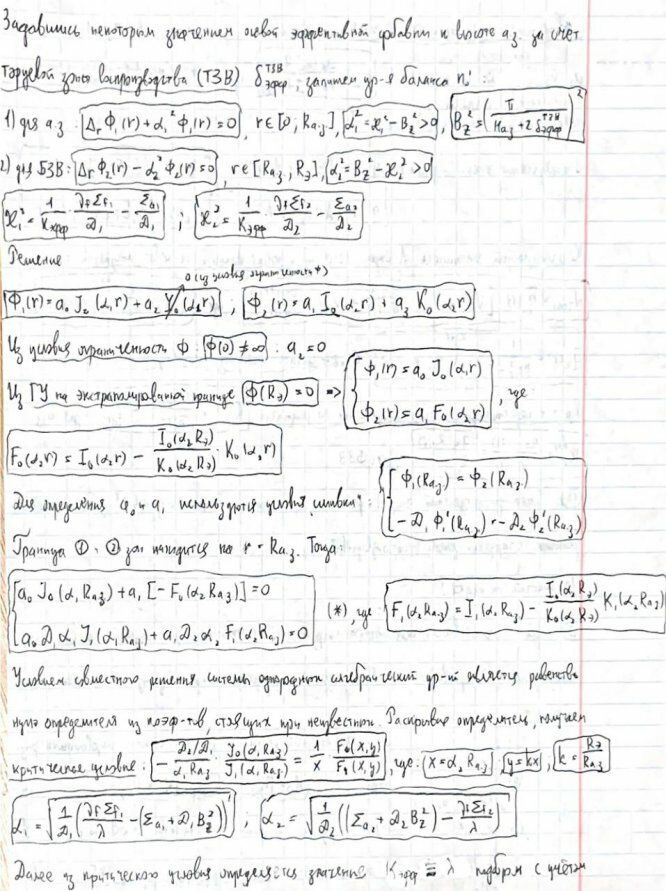 Задавшись некоторым значением осевой эффективной добавки к высоте а.з. за счёт
торцевой зоны воспроизводства (ТЗВ) δ_эфф^ТЗВ, запишем ур-я баланса n':
1) для а.з.: Δ_r Φ₁(r) + α₁² Φ₁(r) = 0, r∈[0, R_а.з], α₁² = ϰ₁² − B_z² > 0, B_z² = (π / (H_аз + 2 δ_эфф^ТЗВ))²
2) для БЗВ: Δ_r Φ₂(r) − α₂² Φ₂(r) = 0, r∈[R_аз, R_э], α₂² = B_z² − ϰ₂² > 0
ϰ₁² = 1/K_эфф · ν_fΣ_f₁/D₁ − Σ_a₁/D₁ ; ϰ₂² = 1/K_эфф · ν_fΣ_f₂/D₂ − Σ_a₂/D₂
Решение
0 (из условия ограниченности Φ)
Φ₁(r) = a₀ J₀(α₁r) + a₂ Y₀(α₁r) ; Φ₂(r) = a₁ I₀(α₂r) + a₃ K₀(α₂r)
Из условия ограниченность Φ: Φ(0) ≠ ∞ : a₂ = 0
Из ГУ на экстраполированной границе Φ(R_э) = 0 => { Φ₁(r) = a₀ J₀(α₁r)
Φ₂(r) = a₁ F₀(α₂r) , где
F₀(α₂r) = I₀(α₂r) − I₀(α₂R_э)/K₀(α₂R_э) · K₀(α₂r)
Для определения a₀ и a₁ используются условия "сшивки": { Φ₁(R_аз) = Φ₂(R_аз)
−D₁Φ₁'(R_аз) = −D₂Φ₂'(R_аз)
Граница ① и ② зон находится на r = R_аз. Тогда:
{ a₀ J₀(α₁R_аз) + a₁[−F₀(α₂R_аз)] = 0
a₀ D₁α₁ J₁(α₁R_аз) + a₁D₂α₂ F₁(α₂R_аз) = 0 (*), где F₁(α₂R_аз) = I₁(α₂R_аз) − I₀(α₂R_э)/K₀(α₂R_э) K₁(α₂R_аз)
Условием совместного решения системы однородных алгебраический ур-ий является равенство
нулю определителя из коэф-тов, стоящих при неизвестном. Раскрывая определитель, получаем
критическое условие: − (D₂/D₁)/(α₁R_аз) · J₀(α₁R_аз)/J₁(α₁R_аз) = 1/x · F₀(x,y)/F₁(x,y), где: x = α₂R_аз, y = kx, k = R_э/R_аз
α₁ = √(1/D₁ (ν_fΣ_f₁/λ − (Σ_a₁ + D₁B_z²))) ; α₂ = √(1/D₂ ((Σ_a₂ + D₂B_z²) − ν_fΣ_f₂/λ))
Далее из критического условия определяется значение K_эфф ≡ λ подбором с учётом